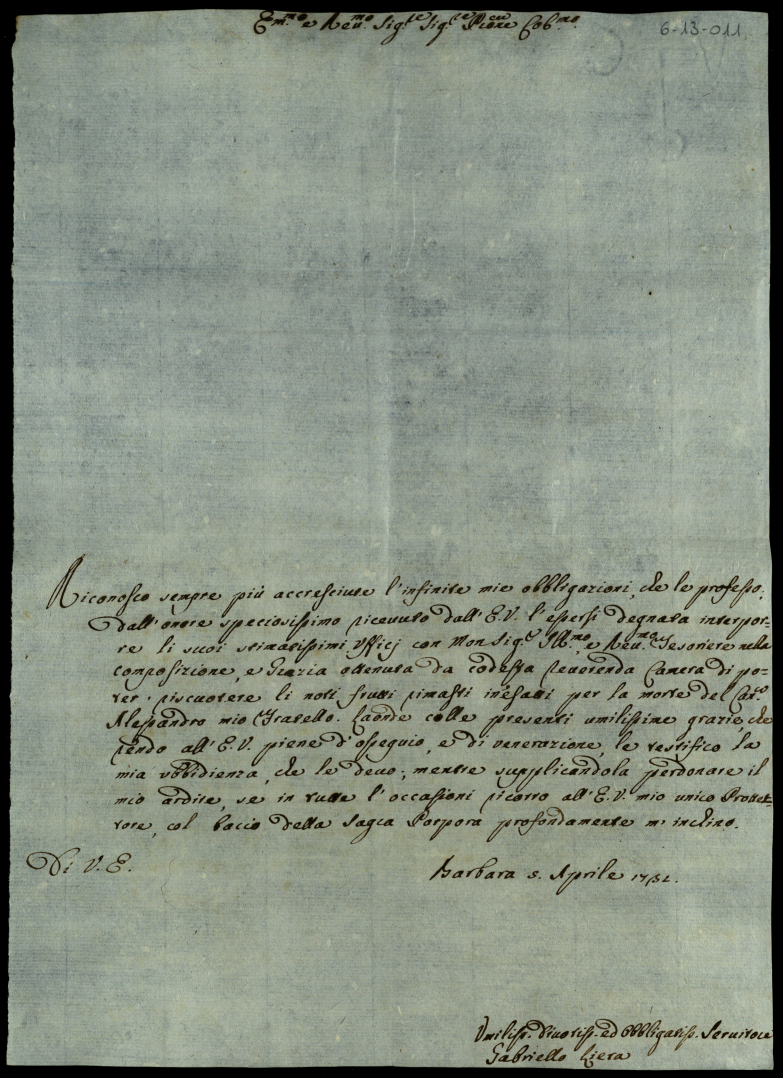 Em.mo e Rev.mo Sig.re Sig.re P.rone Col.mo
6-13-011
Riconosco sempre più accresciute l'infinite mie obbligazioni, che le professo,
dall'onore speciosissimo ricevuto dall'E.V. l'essersi degnata interpor=
re li suoi stimatissimi Ufficj con Monsig.r Ill.mo, e Rev.mo Tesoriere nella
composizione, e Grazia ottenuta da codesta Reverenda Camera di po=
ter riscuotere li noti frutti rimasti inesatti per la morte del
Alessandro mio Fratello. Laonde colle presenti umilissime grazie, che
rendo all'E.V. piene d'ossequio, e di venerazione, le testifico la
mia ubbidienza, che le devo, mentre supplicandola perdonare il
mio ardire, se in tutte l'occassioni ricorro all'E.V. mio unico Protet=
tore, col baccio della Sagra Porpora profondamente m'inclino.
Di V.E.
Barbara 5. Aprile
Umiliss. Divotiss. ed Obbligatiss. Servitore
Gabriello